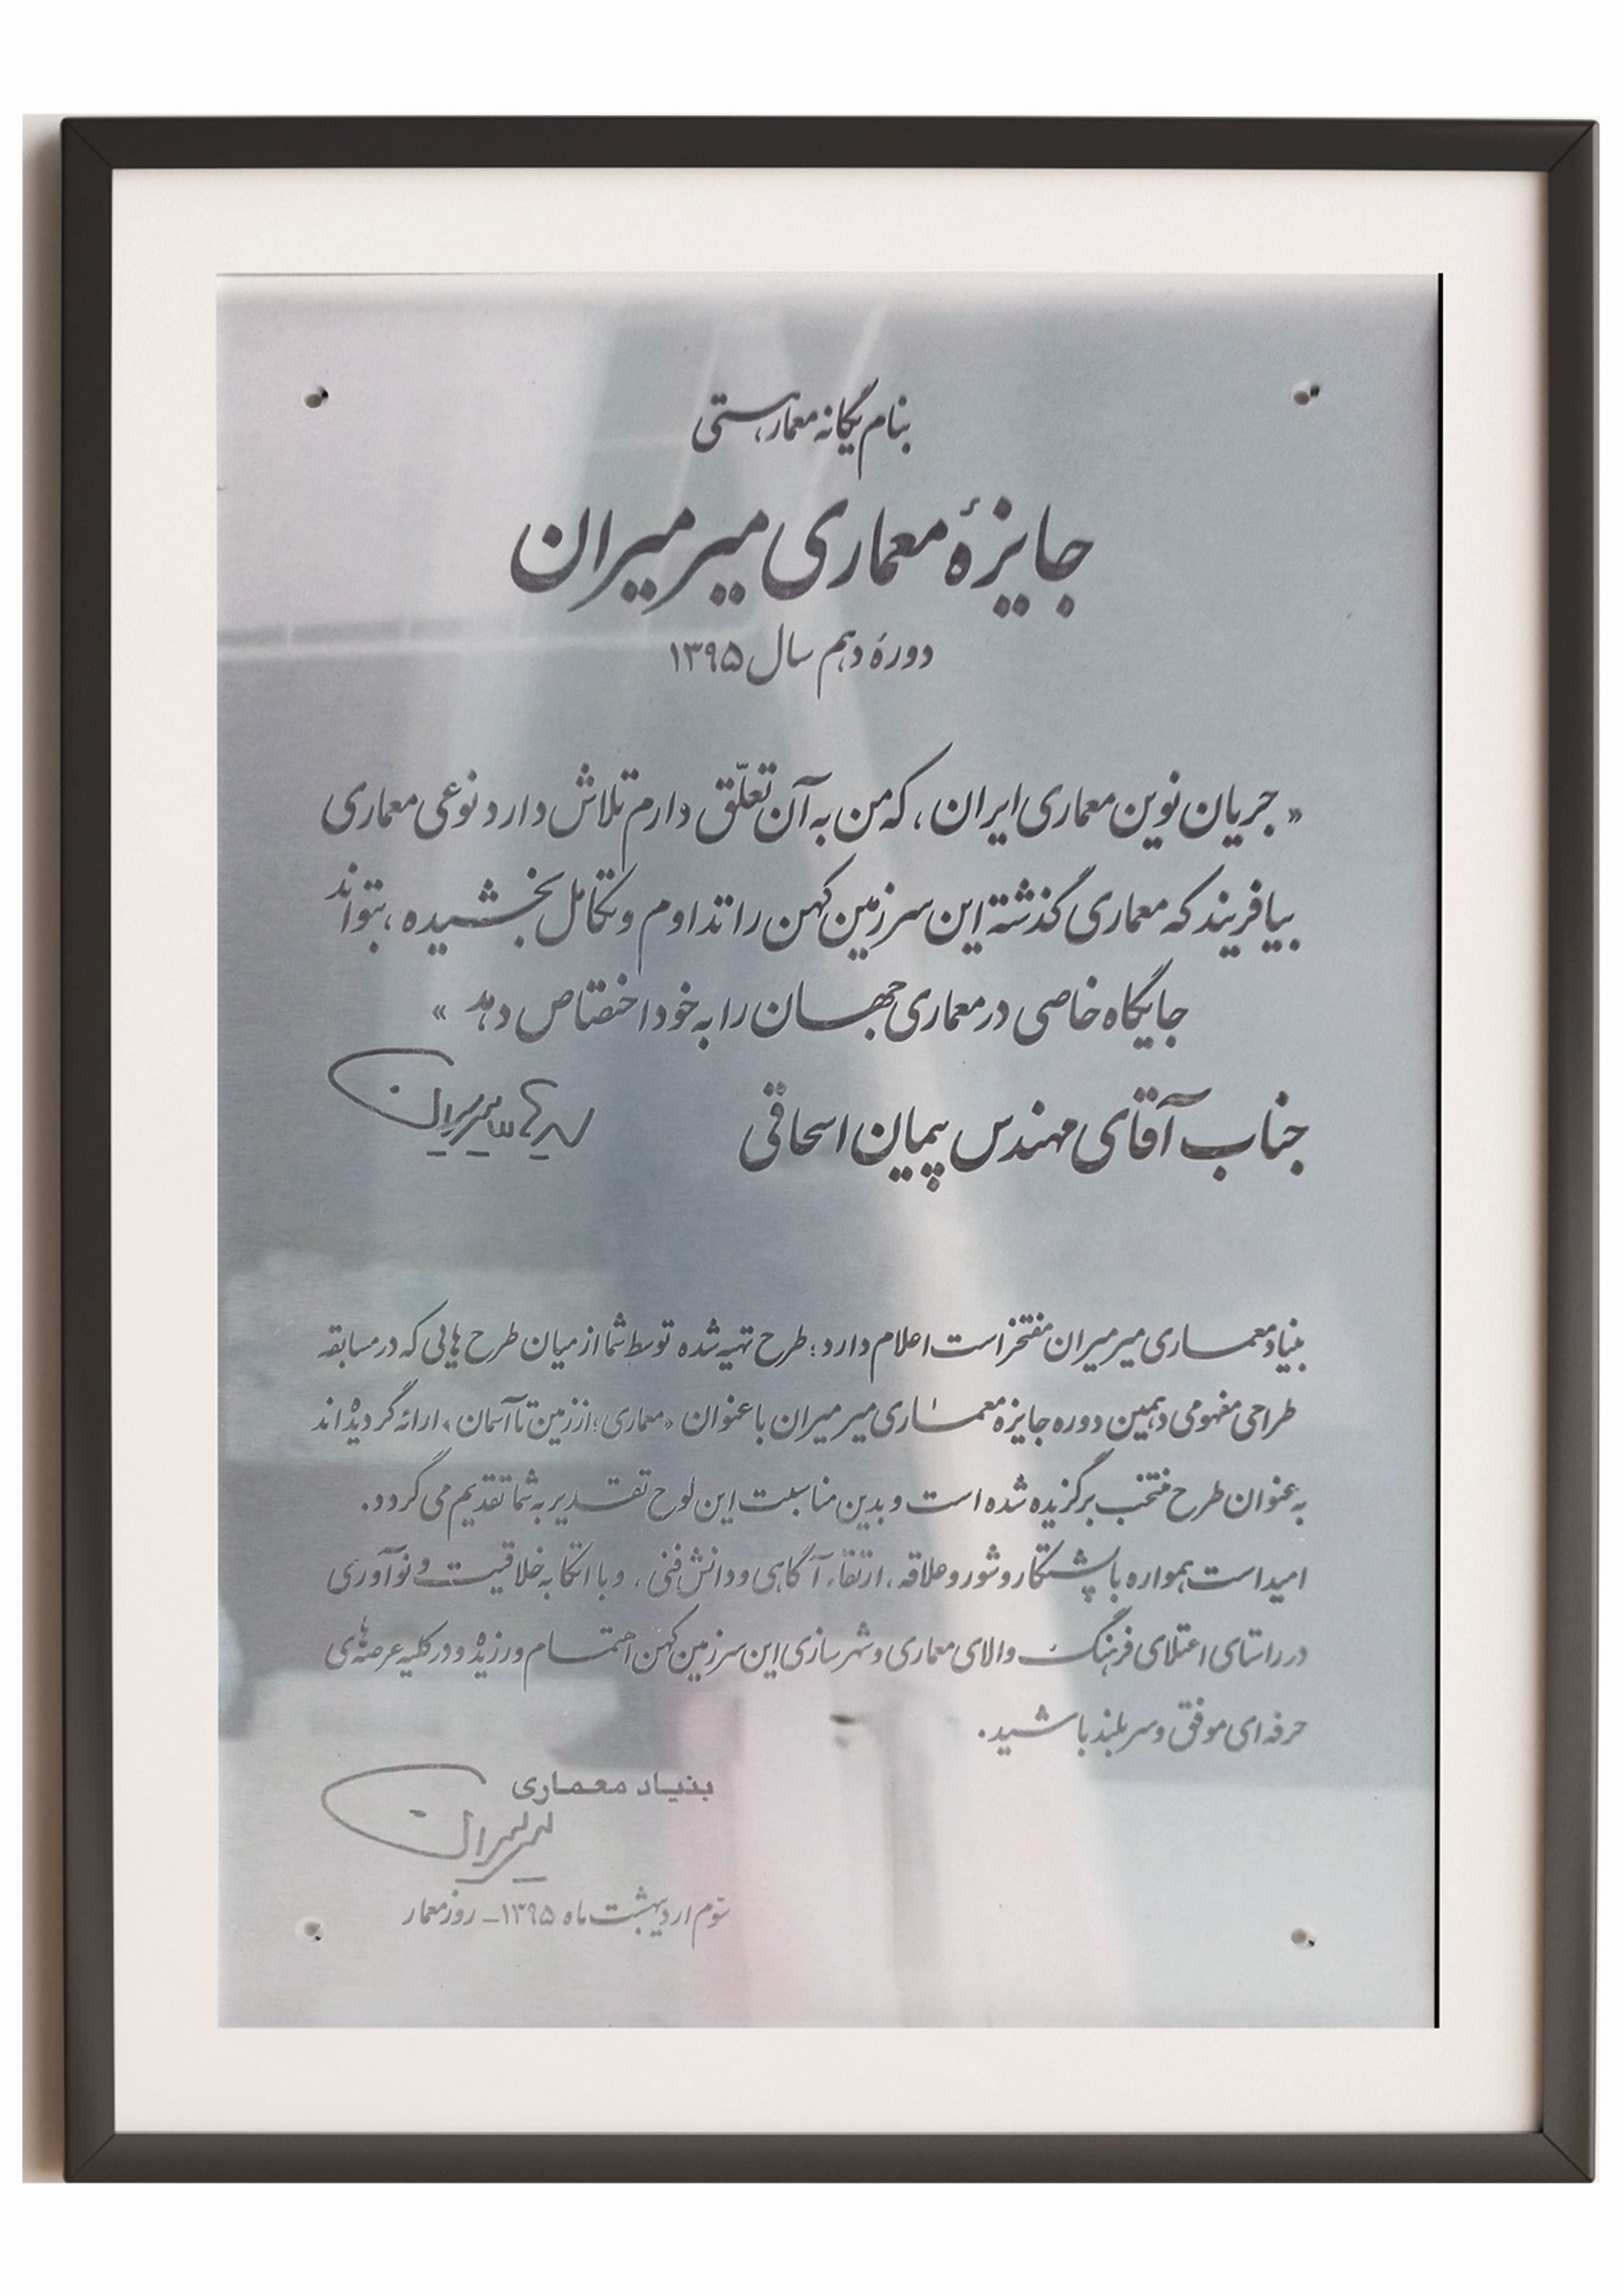 بنام یگانه معمار هستی
جایزهٔ معماری میرمیران
دورهٔ دهم سال ۱۳۹۵
« جریان نوین معماری ایران ، که من به آن تعلّق دارم تلاش دارد نوعی معماری
بیافریند که معماری گذشته این سرزمین کهن را تداوم و تکامل بخشیده ، بتواند
جایگاه خاصی در معماری جهان را به خود اختصاص دهد »
جناب آقای مهندس پیمان اسحاقی
بنیاد معماری میرمیران مفتخر است اعلام دارد ؛ طرح تهیه شده توسط شما از میان طرح هایی که در مسابقه
طراحی مفهومی دهمین دوره جایزه معماری میرمیران با عنوان «معماری ؛ از زمین تا آسمان» ارائه گردیده اند
به عنوان طرح منتخب برگزیده شده است و بدین مناسبت این لوح تقدیر به شما تقدیم می گردد.
امید است همواره با پشتکار و شور و علاقه ، ارتقاء آگاهی و دانش فنی ، و با اتکا به خلاقیت و نوآوری
در راستای اعتلای فرهنگ والای معماری و شهرسازی این سرزمین کهن اهتمام ورزیده و در کلیه عرصه های
حرفه ای موفق و سربلند باشید.
بنیاد معماری
میرمیران
سوّم اردیبهشت ماه ۱۳۹۵ـ روز معمار